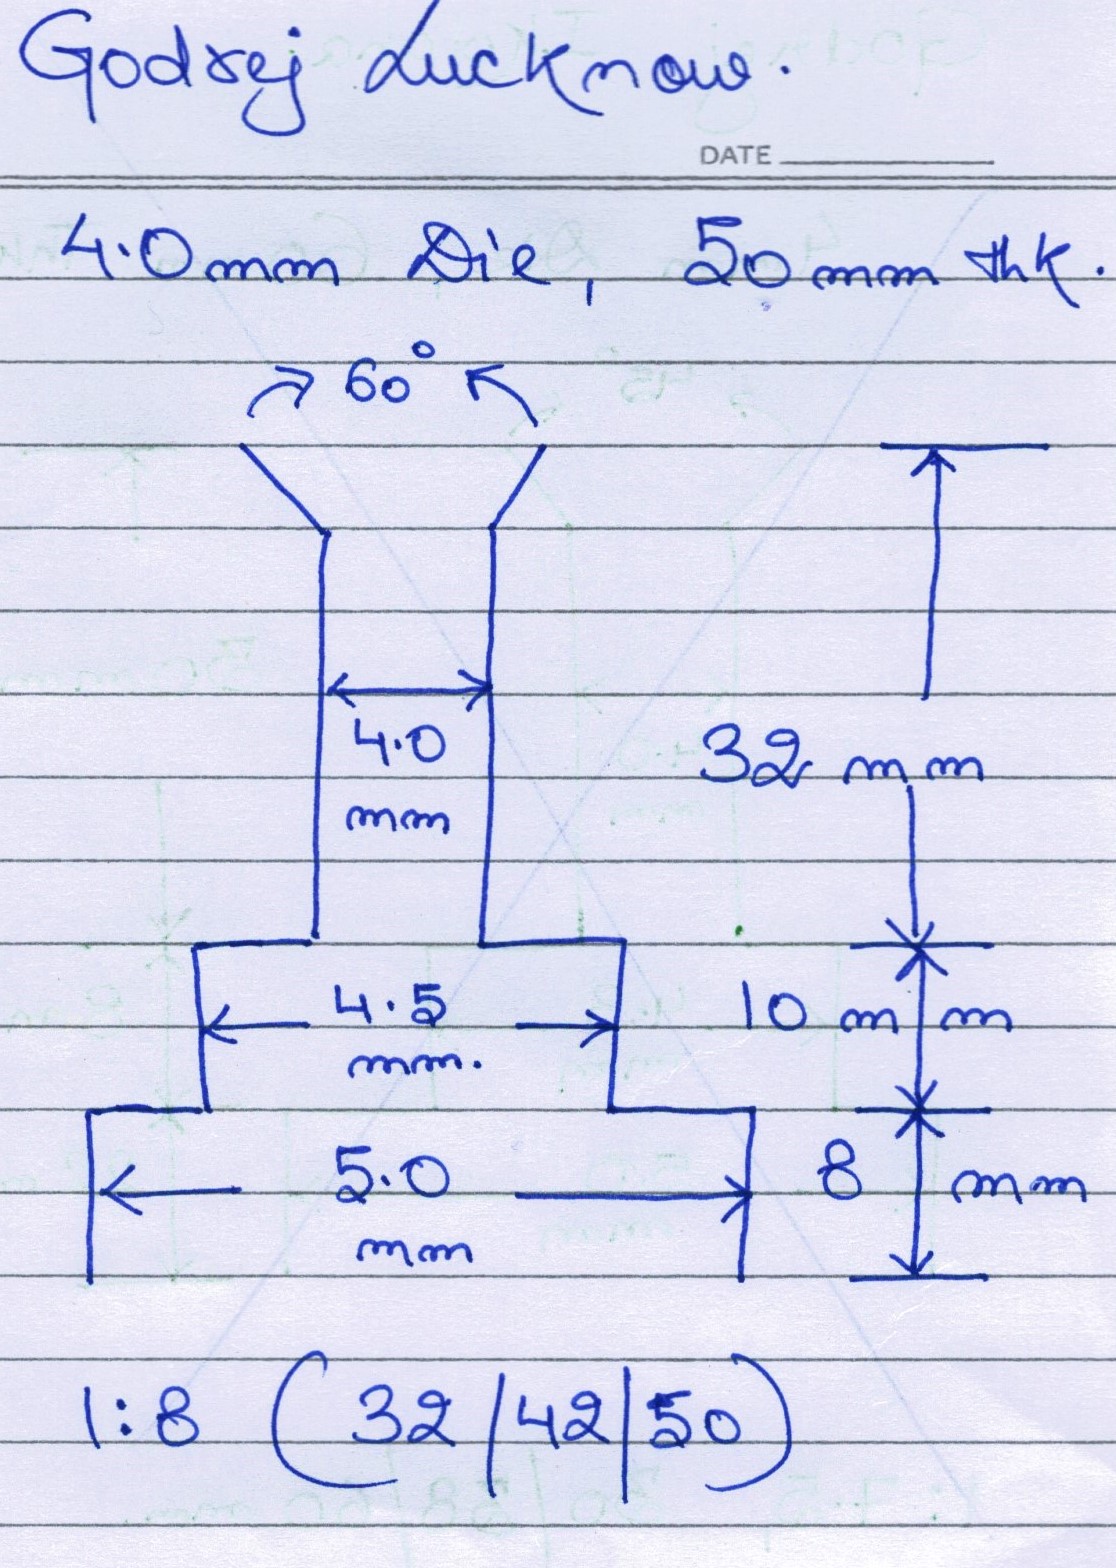 Godrej Lucknow.
DATE
4.0mm Die, 50mm thk.
60°
4.0
mm
32 mm
4.5
mm.
10 mm
5.0
mm
8 mm
1:8 (32/42/50)